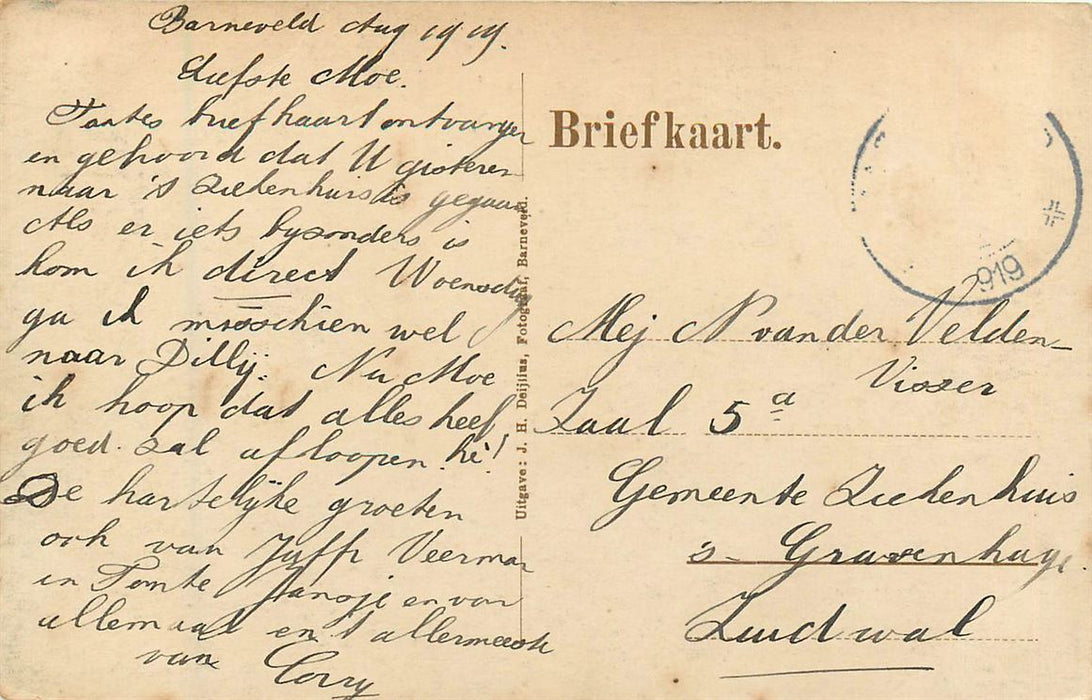 Barneveld Aug 1919.
Liefste Moe.
Tantes briefkaart ontvangen
en gehoord dat U gisteren
naar 's Ziekenhuis is gegaan
Als er iets byzonders is
kom ik direct Woensdag
ga ik misschien wel
naar Dilly. Nu Moe
ik hoop dat alles heel
goed zal afloopen. hè!
De hartelyke groeten
ook van Juffr Veerman
en Tante Jansje en van
allemaal en 't allermeeste
van Corry
Uitgave: J. H. Deijlius, Fotograaf, Barneveld.
Briefkaart.
919
Mej N van der Velden-
Visser
Zaal 5a
Gemeente Ziekenhuis
s- Gravenhage
Zuidwal